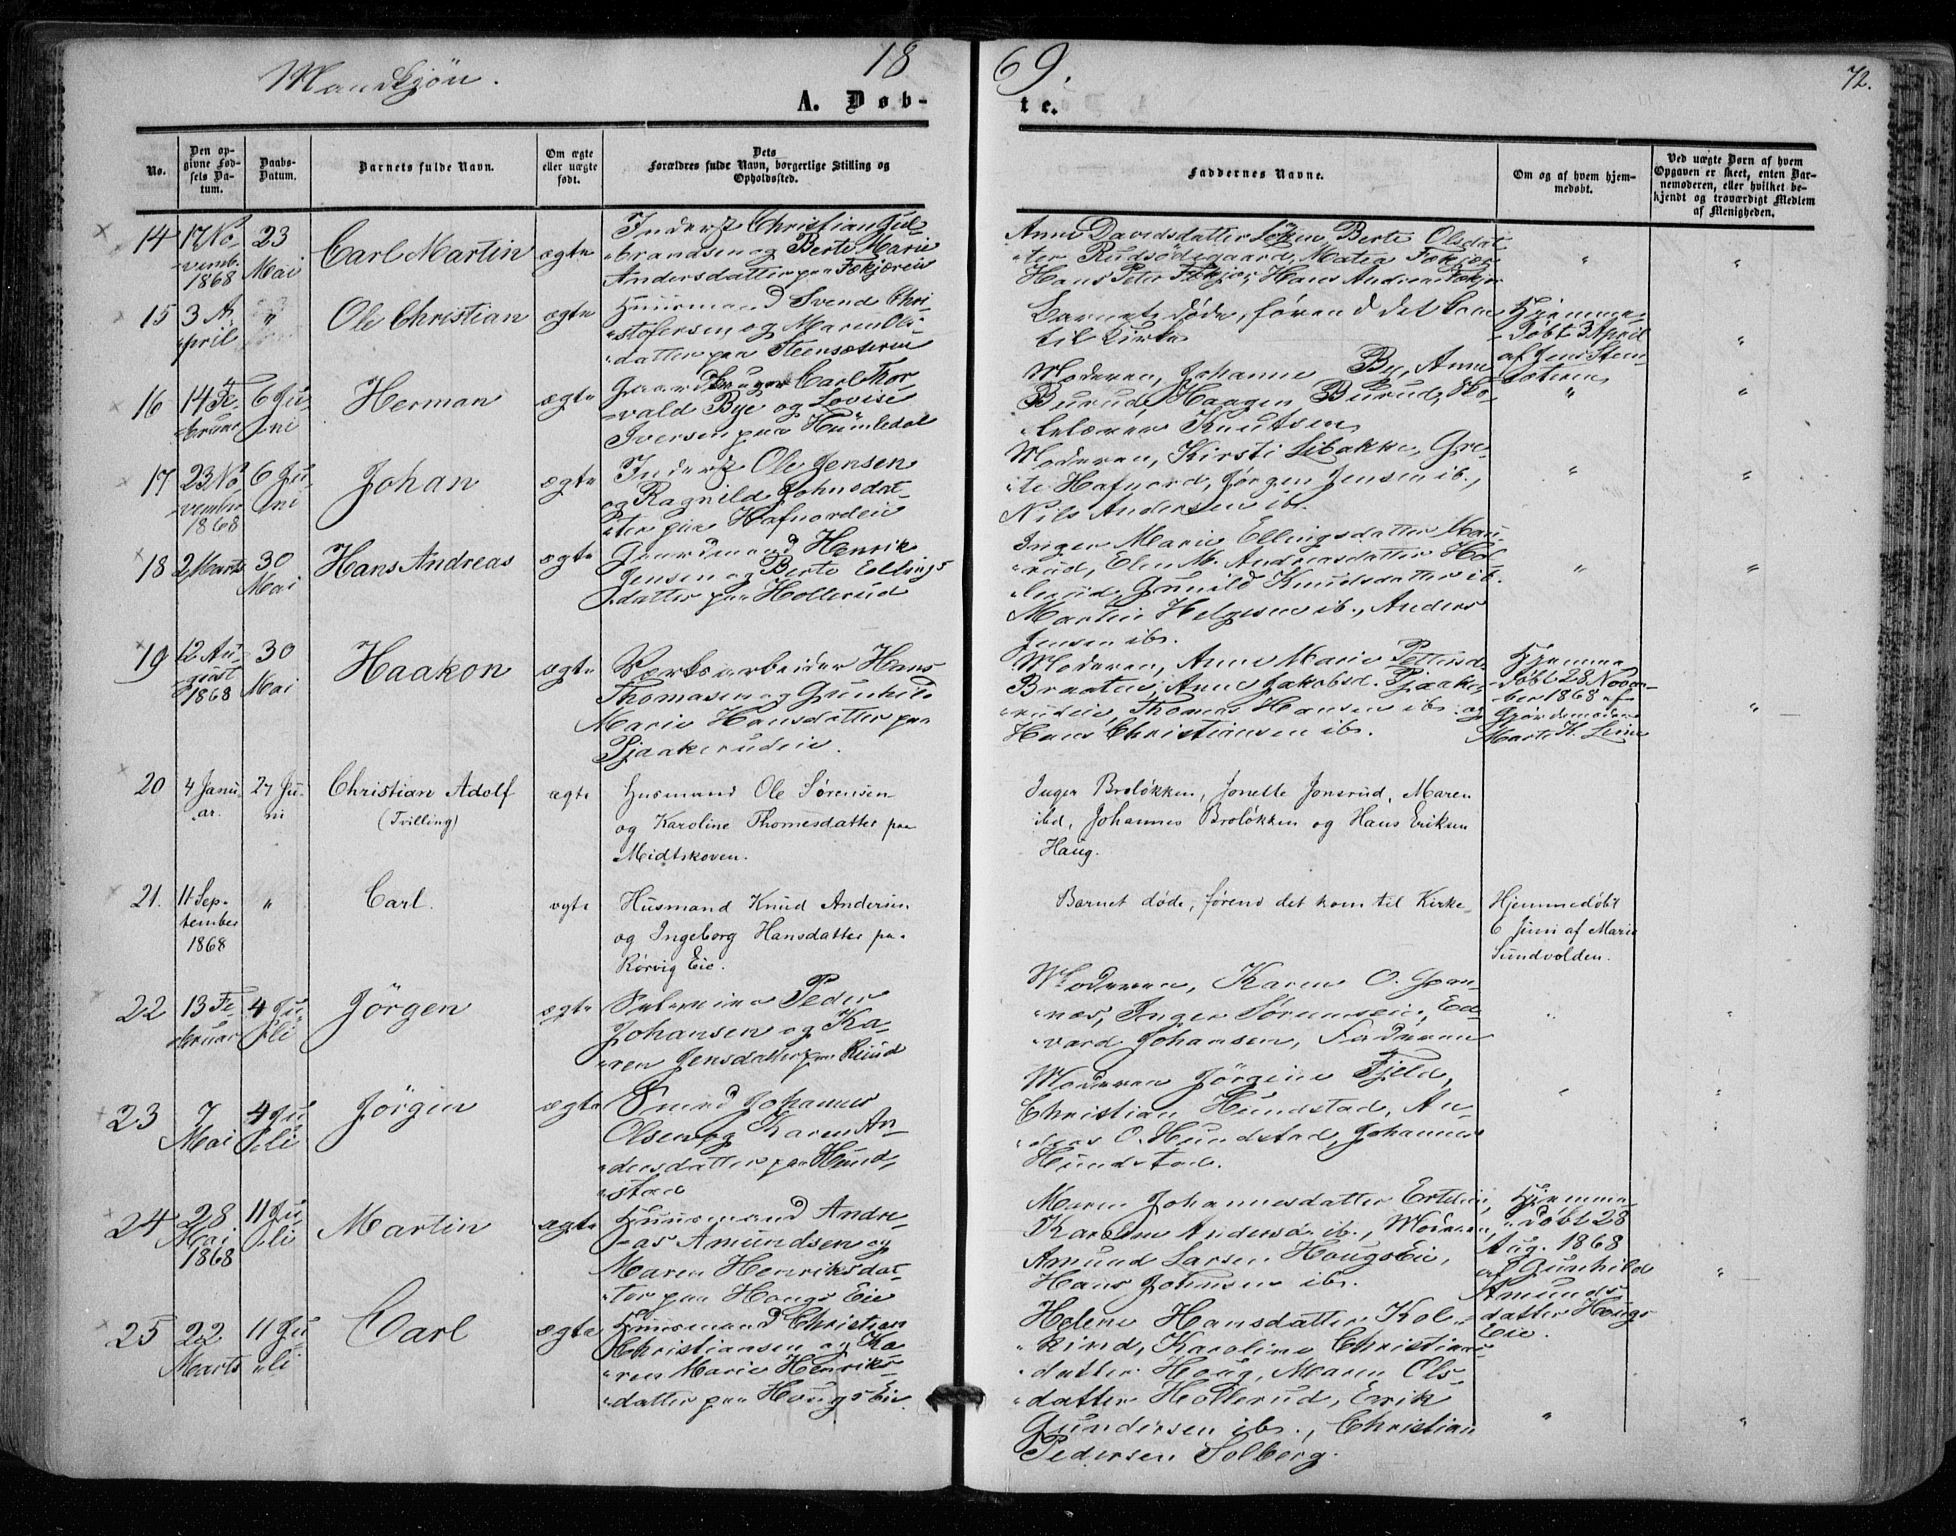 Mandkjøn.
18 69.
72.
A. Døbte.
No.
Den opgivne Fødsels Datum.
Daabs-Datum.
Barnets fulde Navn.
Om ægte eller uægte født.
Dets Forældres fulde Navn, borgerlige Stilling og Opholdssted.
Faddernes Navne.
Om og af hvem hjemmedøbt.
Ved uægte Børn af hvem Opgaven er skeet, enten Barnemoderen, eller hvilket bekjendt og troværdigt Medlem af Menigheden.
14
17 No-
vemb.
1868
23
Mai
Carl Martin
ægte
Inderst Christian Gul
brandsen og Berte Marie
Andersdatter paa
Anne Davidsdatter Berte Olsdat
ter Rudsødegaard, Matea
Hans Peter Hans Andreas
"
"
15
3 A-
pril
"
Ole Christian
ægte
Huusmand Svend Chri-
stofersen og Maren Ols-
datter paa
Barnet døde, førend det kom
til Kirke
Hjemme-
døbt 3 April
af Jens Steen-
sæteren
"
16
14 Fe-
bruar
6 Ju-
ni
Herman
ægte
Gaardbruger Carl Thor
vald Bye og Lovise
Iversen paa Humledal
Moderen, Johanne By, Anne
Burud, Haagen Burud, Sko-
lelærer Knutsen
"
"
17
23 No-
vember
1868
6 Ju-
ni
Johan
ægte
Inderst Ole Jensen
og Ragnild Johnsdat-
ter paa Hafnoreie
Moderen, Kirsti Libakke, Gre-
te Hafnord, Jørgen Jensen ib.,
Nils Andersen ib.
"
"
18
2 Marts
30
Mai
Hans Andreas
ægte
Gaardmand Henrik
Jensen og Berte Ellings
datter paa Hollerud
Inger Marie Ellingsdatter
rud, Elen M. Andreasdatter Hol
lerud, Gunild Knudsdatter ib.
Martin Helgesen ib., Anders
Jensen ib.
"
"
19
12 Au-
gust
1868
30
Mai
Haakon
ægte
Værksarbeider Hans
Thomasen og Gunhild
Marie Hansdatter paa
Pjaakerudeie.
Moderen, Anne Marie Pettersd.
Braaten, Anne Jakobsd. Pjaake-
rudeie, Thomas Hansen ib. og
Hans Christiansen ib.
Hjemme
døbt 28 Novem-
ber 1868 af
Gjordemoder
Marte K. Lune
"
20
4 Janu-
ar.
27 Ju-
ni
Christian Adolf
(Tvilling)
ægte
Husmand Ole Sørensen
og Karoline Thomesdatter paa
Midtskoven.
Inger Broløkken, Jonette Jonsrud, Maren
ibd, Johannes Broløkken og Hans Eriksen
Haug.
21.
11 Sep-
tember
1868
"
Carl.
ægte
Husmand Knud Andersen
og Ingeborg Hansdatter paa
Rørvig Eie.
Barnet døde, førend det kom til Kirke
Hjemmedøbt
6 Juni af Marie
Sundvolden.
22
13 Fe-
bruar
4 Ju-
li
Jörgen
ægte
Selveier Peder
Johansen og Ka-
ren Jensdatter paa Rud
Moderen, Karen O.
næs, Inger Sørumseie, Ed-
vard Johansen, Faderen
"
"
23
7
Mai
4 Ju
li
Jörgen
ægte
Smed Johannes
Olsen og Karen An-
dersdatter paa Hund-
stad
Moderen Jörgine Fjeld,
Christian Hundstad, An-
dreas O. Hundstad, Johannes
Hundstad.
"
"
24
28
Mai
1868
11 Ju
li
Martin
ægte
Huusmand Andre-
as Amundsen og
Maren Henriksdat-
ter paa Hougs Eie
Maren Johannesdatter
Karoline Andersd. ib., Moderen,
Amund Larsen Hougs Eie,
Hans Johnsen ib.
Hjemme-
døbt 28
Aug. 1868
af Gunhild
Amunds-
datter Hougs
Eie.
"
25
22
Marts
11 Ju
li
Carl
ægte
Huusmand Christian
Christiansen og Ka-
ren Marie Henriks-
datter paa Hougs Eie.
Helene Hansdatter Kol-
kind, Karoline Christians-
datter Houg, Maren Ols-
datter Hollerud, Errik
Gundersen ib., Christian
Pedersen Solberg.
"
"